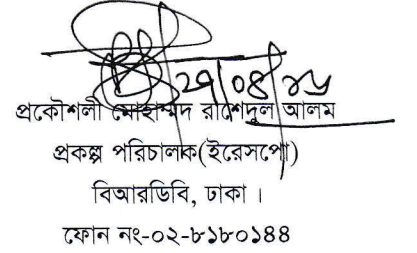 প্রকৌশলী মোহাম্মদ রাশেদুল আলম
প্রকল্প পরিচালক(ইরেসপো)
বিআরডিবি, ঢাকা ।
ফোন নং-০২-৮১৮০১৪৪